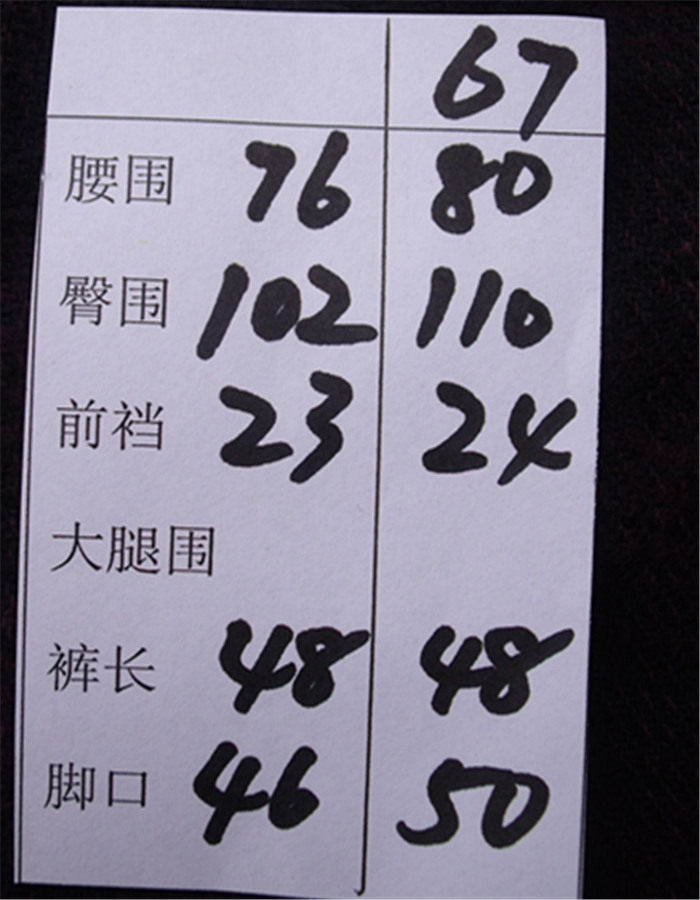 67
腰围 76 80
臀围 102 110
前裆 23 24
大腿围
裤长 48 48
脚口 46 50